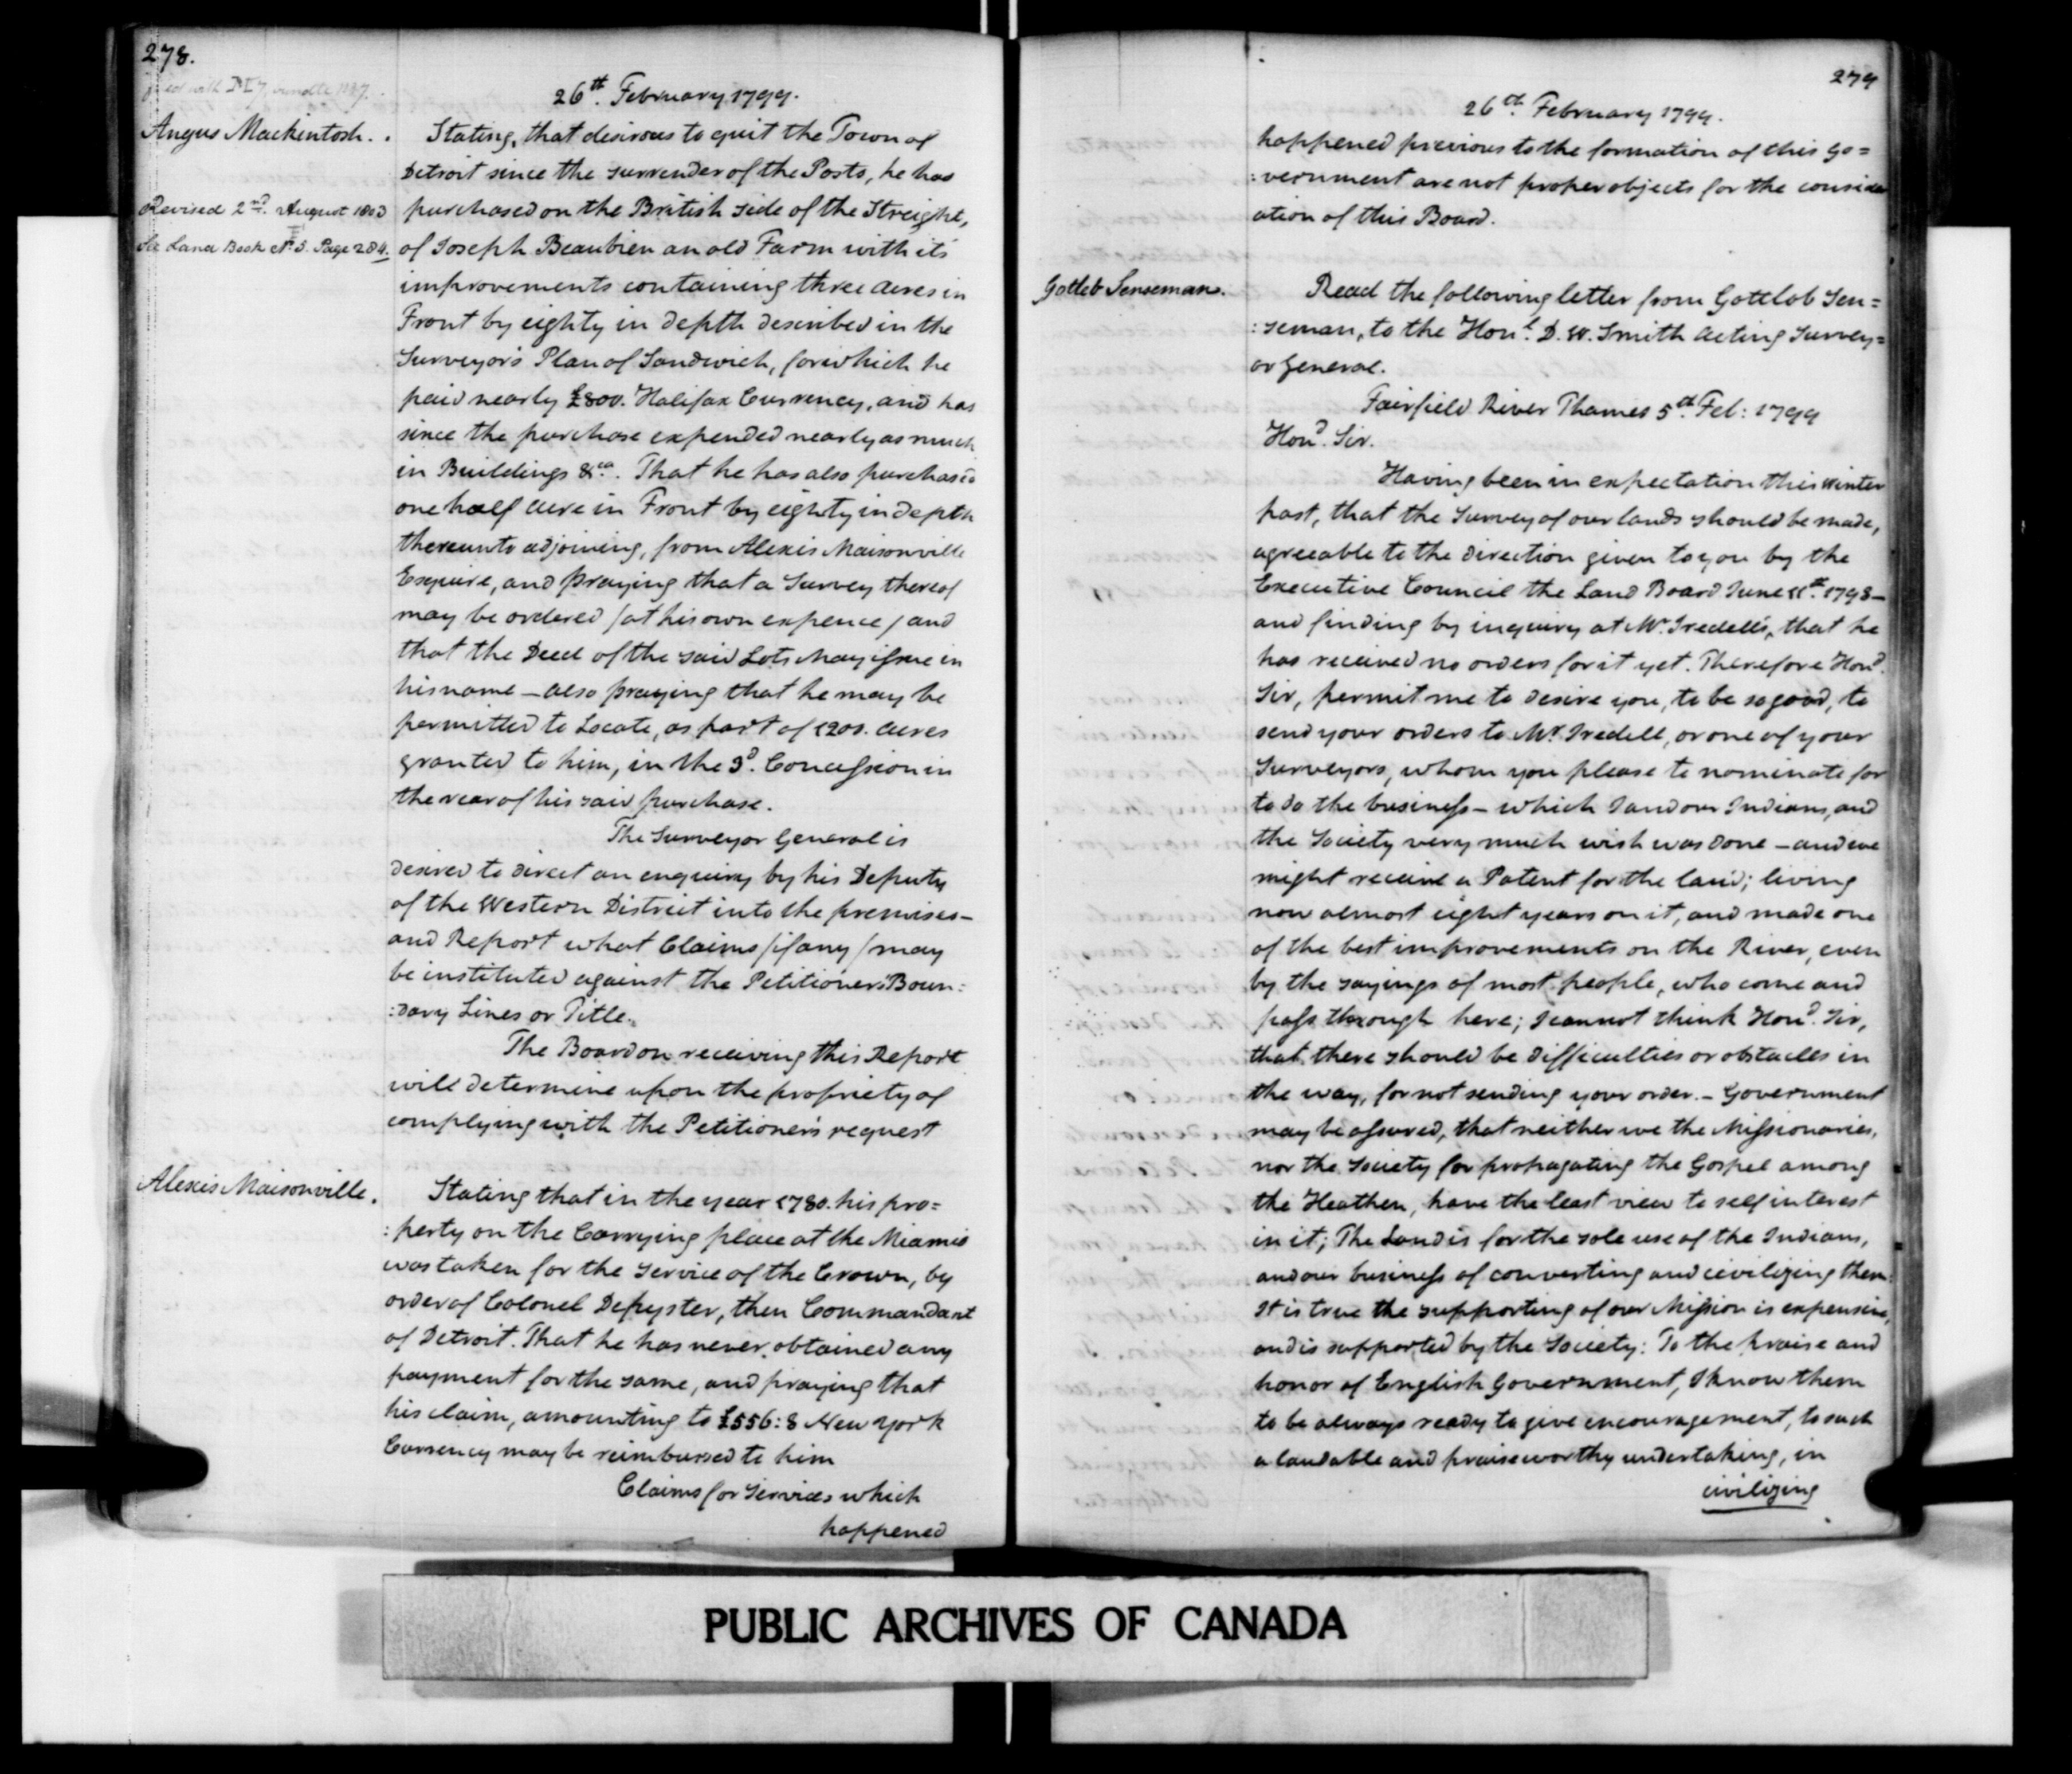 278.
26th. February 1799.
Angus Mackintosh.
Revised 2nd. August 1803
See Land Book No. 5. Page 284.
Stating, that desirous to quit the Town of
Detroit since the surrender of the Posts, he has
purchased on the British side of the Streight,
of Joseph Beaubien an old Farm with its
improvements containing three acres in
Front by eighty in depth described in the
Surveyor's Plan of Sandwich, for which he
paid nearly £800. Halifax Currency, and has
since the purchase expended nearly as much
in Buildings &ca. That he has also purchased
one half acre in Front by eighty in depth
thereunto adjoining, from Alexis Maisonville
Esquire, and praying that a Survey thereof
may be ordered / at his own expence / and
that the Deed of the said Lots May issue in
his name – also praying that he may be
permitted to Locate, as part of 1200. acres
granted to him, in the 3d. Concession in
the rear of his said purchase.
The Surveyor General is
desired to direct an enquiry by his Deputy
of the Western District into the premises –
and Report what Claims / if any / may
be instituted against the Petitioner's Boun:
:dary Lines or Title.
The Board on receiving this Report
will determine upon the propriety of
complying with the Petitioner's request
Alexis Maisonville.
Stating that in the year 1780. his pro=
:perty on the Carrying place at the Miamis
was taken for the service of the Crown, by
order of Colonel Depyster, then Commandant
of Detroit. That he has never obtained any
payment for the same, and praying that
his claim, amounting to £556:8 New York
Currency may be reimbursed to him
Claims for Services which
happened
279
26th. February 1799.
happened previous to the formation of this Go=
:vernment are not proper objects for the consider
ation of this Board.
Gotleb Senseman.
Read the following letter from Gottlob Sen=
:seman, to the Honl. D. W. Smith Acting Survey=
or General.
Fairfield River Thames 5th. Feb: 1799
Hond. Sir.
Having been in expectation this winter
past, that the Survey of our lands should be made,
agreeable to the direction given to you by the
Executive Council the Land Board June 11th. 1798 –
and finding by inquiry at Mr. Iredell's, that he
has received no orders for it yet. Therefore Hond.
Sir, permit me to desire you, to be so good, to
send your orders to Mr. Iredell, or one of your
Surveyors, whom you please to nominate for
to do the business – which I and our Indians, and
the Society very much wish was done – and we
might receive a Patent for the land; living
now almost eight years on it, and made one
of the best improvements on the River, even
by the sayings of most people, who come and
pass through here; I cannot think Hond. Sir,
that there should be difficulties or obstacles in
the way, for not sending your order. – Government
may be assured, that neither we the Missionaries,
nor the Society for propagating the Gospel among
the Heathen, have the least view to self interest
in it; The Land is for the sole use of the Indians,
and our business of converting and civilizing them:
It is true the supporting of our Mission is expensive,
and is supported by the Society: To the praise and
honor of English Government, I know them
to be always ready to give encouragement, to such
a laudable and praiseworthy undertaking, in
civilizing
PUBLIC ARCHIVES OF CANADA